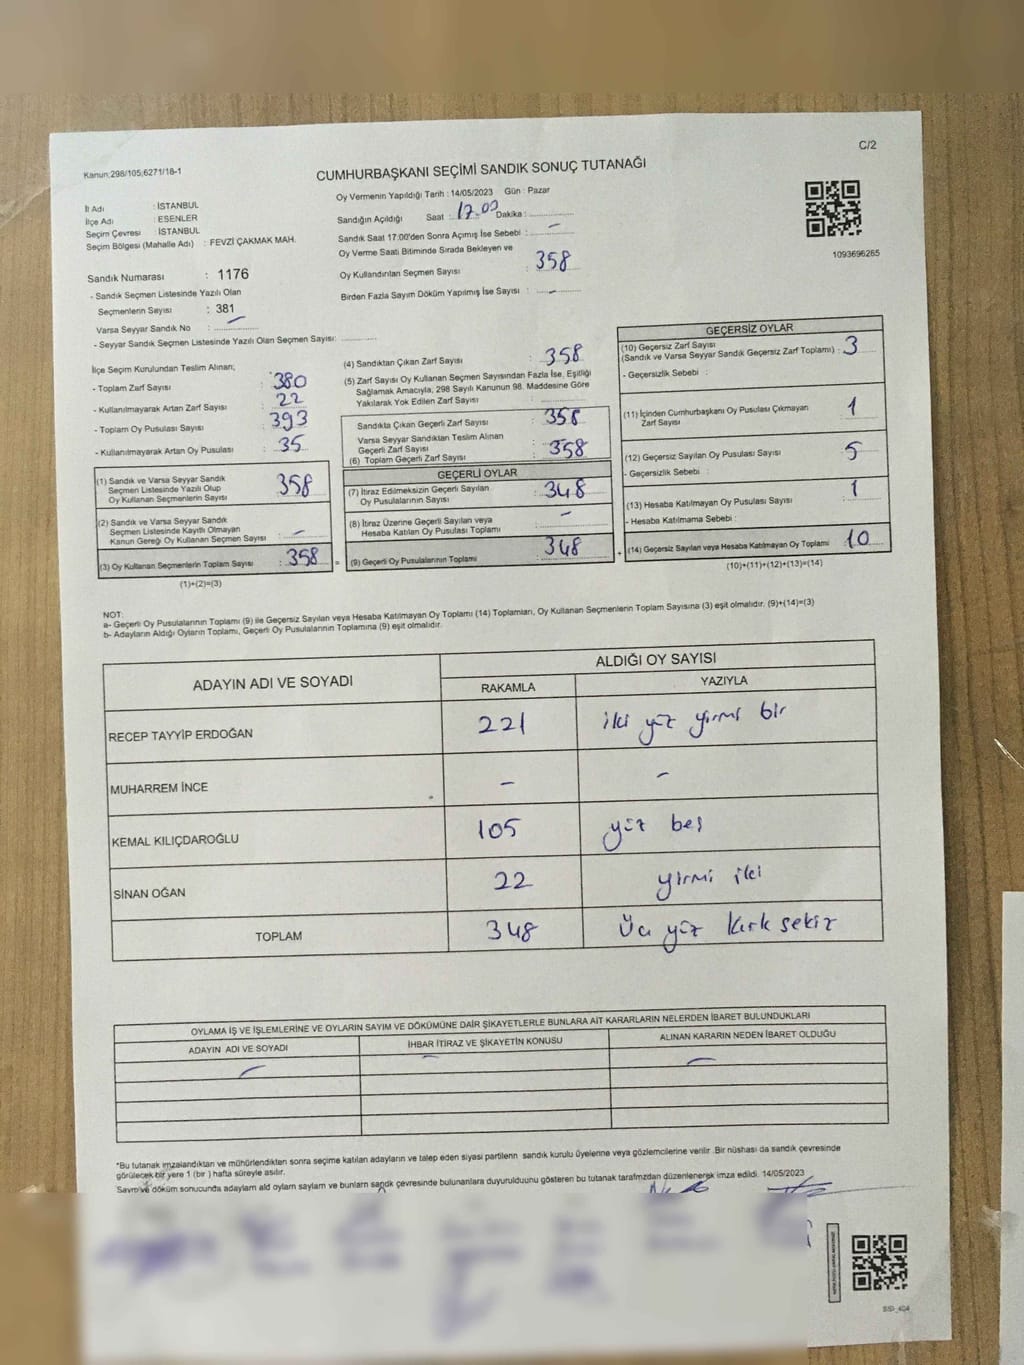 C/2
Kanun;298/105;6271/18-1
CUMHURBAŞKANI SEÇİMİ SANDIK SONUÇ TUTANAĞI
İl Adı : İSTANBUL
İlçe Adı : ESENLER
Seçim Çevresi : İSTANBUL
Seçim Bölgesi (Mahalle Adı) : FEVZİ ÇAKMAK MAH.
Oy Vermenin Yapıldığı Tarih : 14/05/2023 Gün : Pazar
Sandığın Açıldığı Saat : 17.00 Dakika :
Sandık Saat 17:00'den Sonra Açımış İse Sebebi : –
Oy Verme Saati Bitiminde Sırada Bekleyen ve
Oy Kullandırılan Seçmen Sayısı : 358
Birden Fazla Sayım Döküm Yapılmış İse Sayısı : –
1093696265
Sandık Numarası : 1176
- Sandık Seçmen Listesinde Yazılı Olan
Seçmenlerin Sayısı : 381
Varsa Seyyar Sandık No : –
- Seyyar Sandık Seçmen Listesinde Yazılı Olan Seçmen Sayısı:
İlçe Seçim Kurulundan Teslim Alınan;
- Toplam Zarf Sayısı : 380
- Kullanılmayarak Artan Zarf Sayısı : 22
- Toplam Oy Pusulası Sayısı : 393
- Kullanılmayarak Artan Oy Pusulası : 35
(1) Sandık ve Varsa Seyyar Sandık
Seçmen Listesinde Yazılı Olup
Oy Kullanan Seçmenlerin Sayısı : 358
(2) Sandık ve Varsa Seyyar Sandık
Seçmen Listesinde Kayıtlı Olmayan
Kanun Gereği Oy Kullanan Seçmen Sayısı : –
(3) Oy Kullanan Seçmenlerin Toplam Sayısı : 358
(1)+(2)=(3)
(4) Sandıktan Çıkan Zarf Sayısı : 358
(5) Zarf Sayısı Oy Kullanan Seçmen Sayısından Fazla İse, Eşitliği
Sağlamak Amacıyla; 298 Sayılı Kanunun 98. Maddesine Göre
Yakılarak Yok Edilen Zarf Sayısı :
Sandıkta Çıkan Geçerli Zarf Sayısı : 358
Varsa Seyyar Sandıktan Teslim Alınan
Geçerli Zarf Sayısı :
(6) Toplam Geçerli Zarf Sayısı : 358
GEÇERLİ OYLAR
(7) İtiraz Edilmeksizin Geçerli Sayılan
Oy Pusulalarının Sayısı : 348
(8) İtiraz Üzerine Geçerli Sayılan veya
Hesaba Katılan Oy Pusulası Toplamı : –
(9) Geçerli Oy Pusulalarının Toplamı : 348
GEÇERSİZ OYLAR
(10) Geçersiz Zarf Sayısı
(Sandık ve Varsa Seyyar Sandık Geçersiz Zarf Toplamı) : 3
- Geçersizlik Sebebi :
(11) İçinden Cumhurbaşkanı Oy Pusulası Çıkmayan
Zarf Sayısı : 1
(12) Geçersiz Sayılan Oy Pusulası Sayısı : 5
- Geçersizlik Sebebi :
(13) Hesaba Katılmayan Oy Pusulası Sayısı : 1
- Hesaba Katılmama Sebebi :
(14) Geçersiz Sayılan veya Hesaba Katılmayan Oy Toplamı : 10
(10)+(11)+(12)+(13)=(14)
NOT:
a- Geçerli Oy Pusulalarının Toplamı (9) ile Geçersiz Sayılan veya Hesaba Katılmayan Oy Toplamı (14) Toplamları, Oy Kullanan Seçmenlerin Toplam Sayısına (3) eşit olmalıdır. (9)+(14)=(3)
b- Adayların Aldığı Oyların Toplamı, Geçerli Oy Pusulalarının Toplamına (9) eşit olmalıdır.
ADAYIN ADI VE SOYADI ALDIĞI OY SAYISI
RAKAMLA YAZIYLA
RECEP TAYYİP ERDOĞAN 221 iki yüz yirmi bir
MUHARREM İNCE – –
KEMAL KILIÇDAROĞLU 105 yüz beş
SİNAN OĞAN 22 yirmi iki
TOPLAM 348 Üç yüz kırk sekiz
OYLAMA İŞ VE İŞLEMLERİNE VE OYLARIN SAYIM VE DÖKÜMÜNE DAİR ŞİKAYETLERLE BUNLARA AİT KARARLARIN NELERDEN İBARET BULUNDUKLARI
ADAYIN ADI VE SOYADI İHBAR İTİRAZ VE ŞİKAYETİN KONUSU ALINAN KARARIN NEDEN İBARET OLDUĞU
– – –
*Bu tutanak imzalandıktan ve mühürlendikten sonra seçime katılan adayların ve talep eden siyasi partilerin sandık kurulu üyelerine veya gözlemcilerine verilir. Bir nüshası da sandık çevresinde
görülecek bir yere 1 (bir) hafta süreyle asılır.
Sayım ve döküm sonucunda adayların aldığı oyların sayıları ve bunların sandık çevresinde bulunanlara duyurulduğunu gösteren bu tutanak tarafımızdan düzenlenerek imza edildi. 14/05/2023